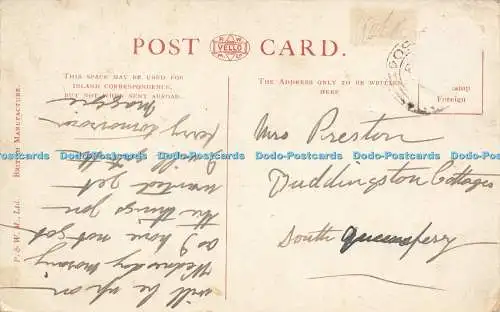 POST CARD.
R W
VELLO
THIS SPACE MAY BE USED FOR
INLAND CORRESPONDENCE,
BUT NOT WHEN SENT ABROAD.
THE ADDRESS ONLY TO BE WRITTEN
HERE
amp
Foreign
P. & W. M., Ltd. British Manufacture.
will be up on
Wednesday morning
as I have not got
the things you
wanted yet
I will get the
ferry tomorrow
Maggie
Mrs Preston
Duddingston Cottages
South Queensferry
Dodo-Postcards Dodo-Postcards Dodo-Postcards Dodo-Postcards
Dodo-Postcards Dodo-Postcards Dodo-Postcards Dodo-Postcards